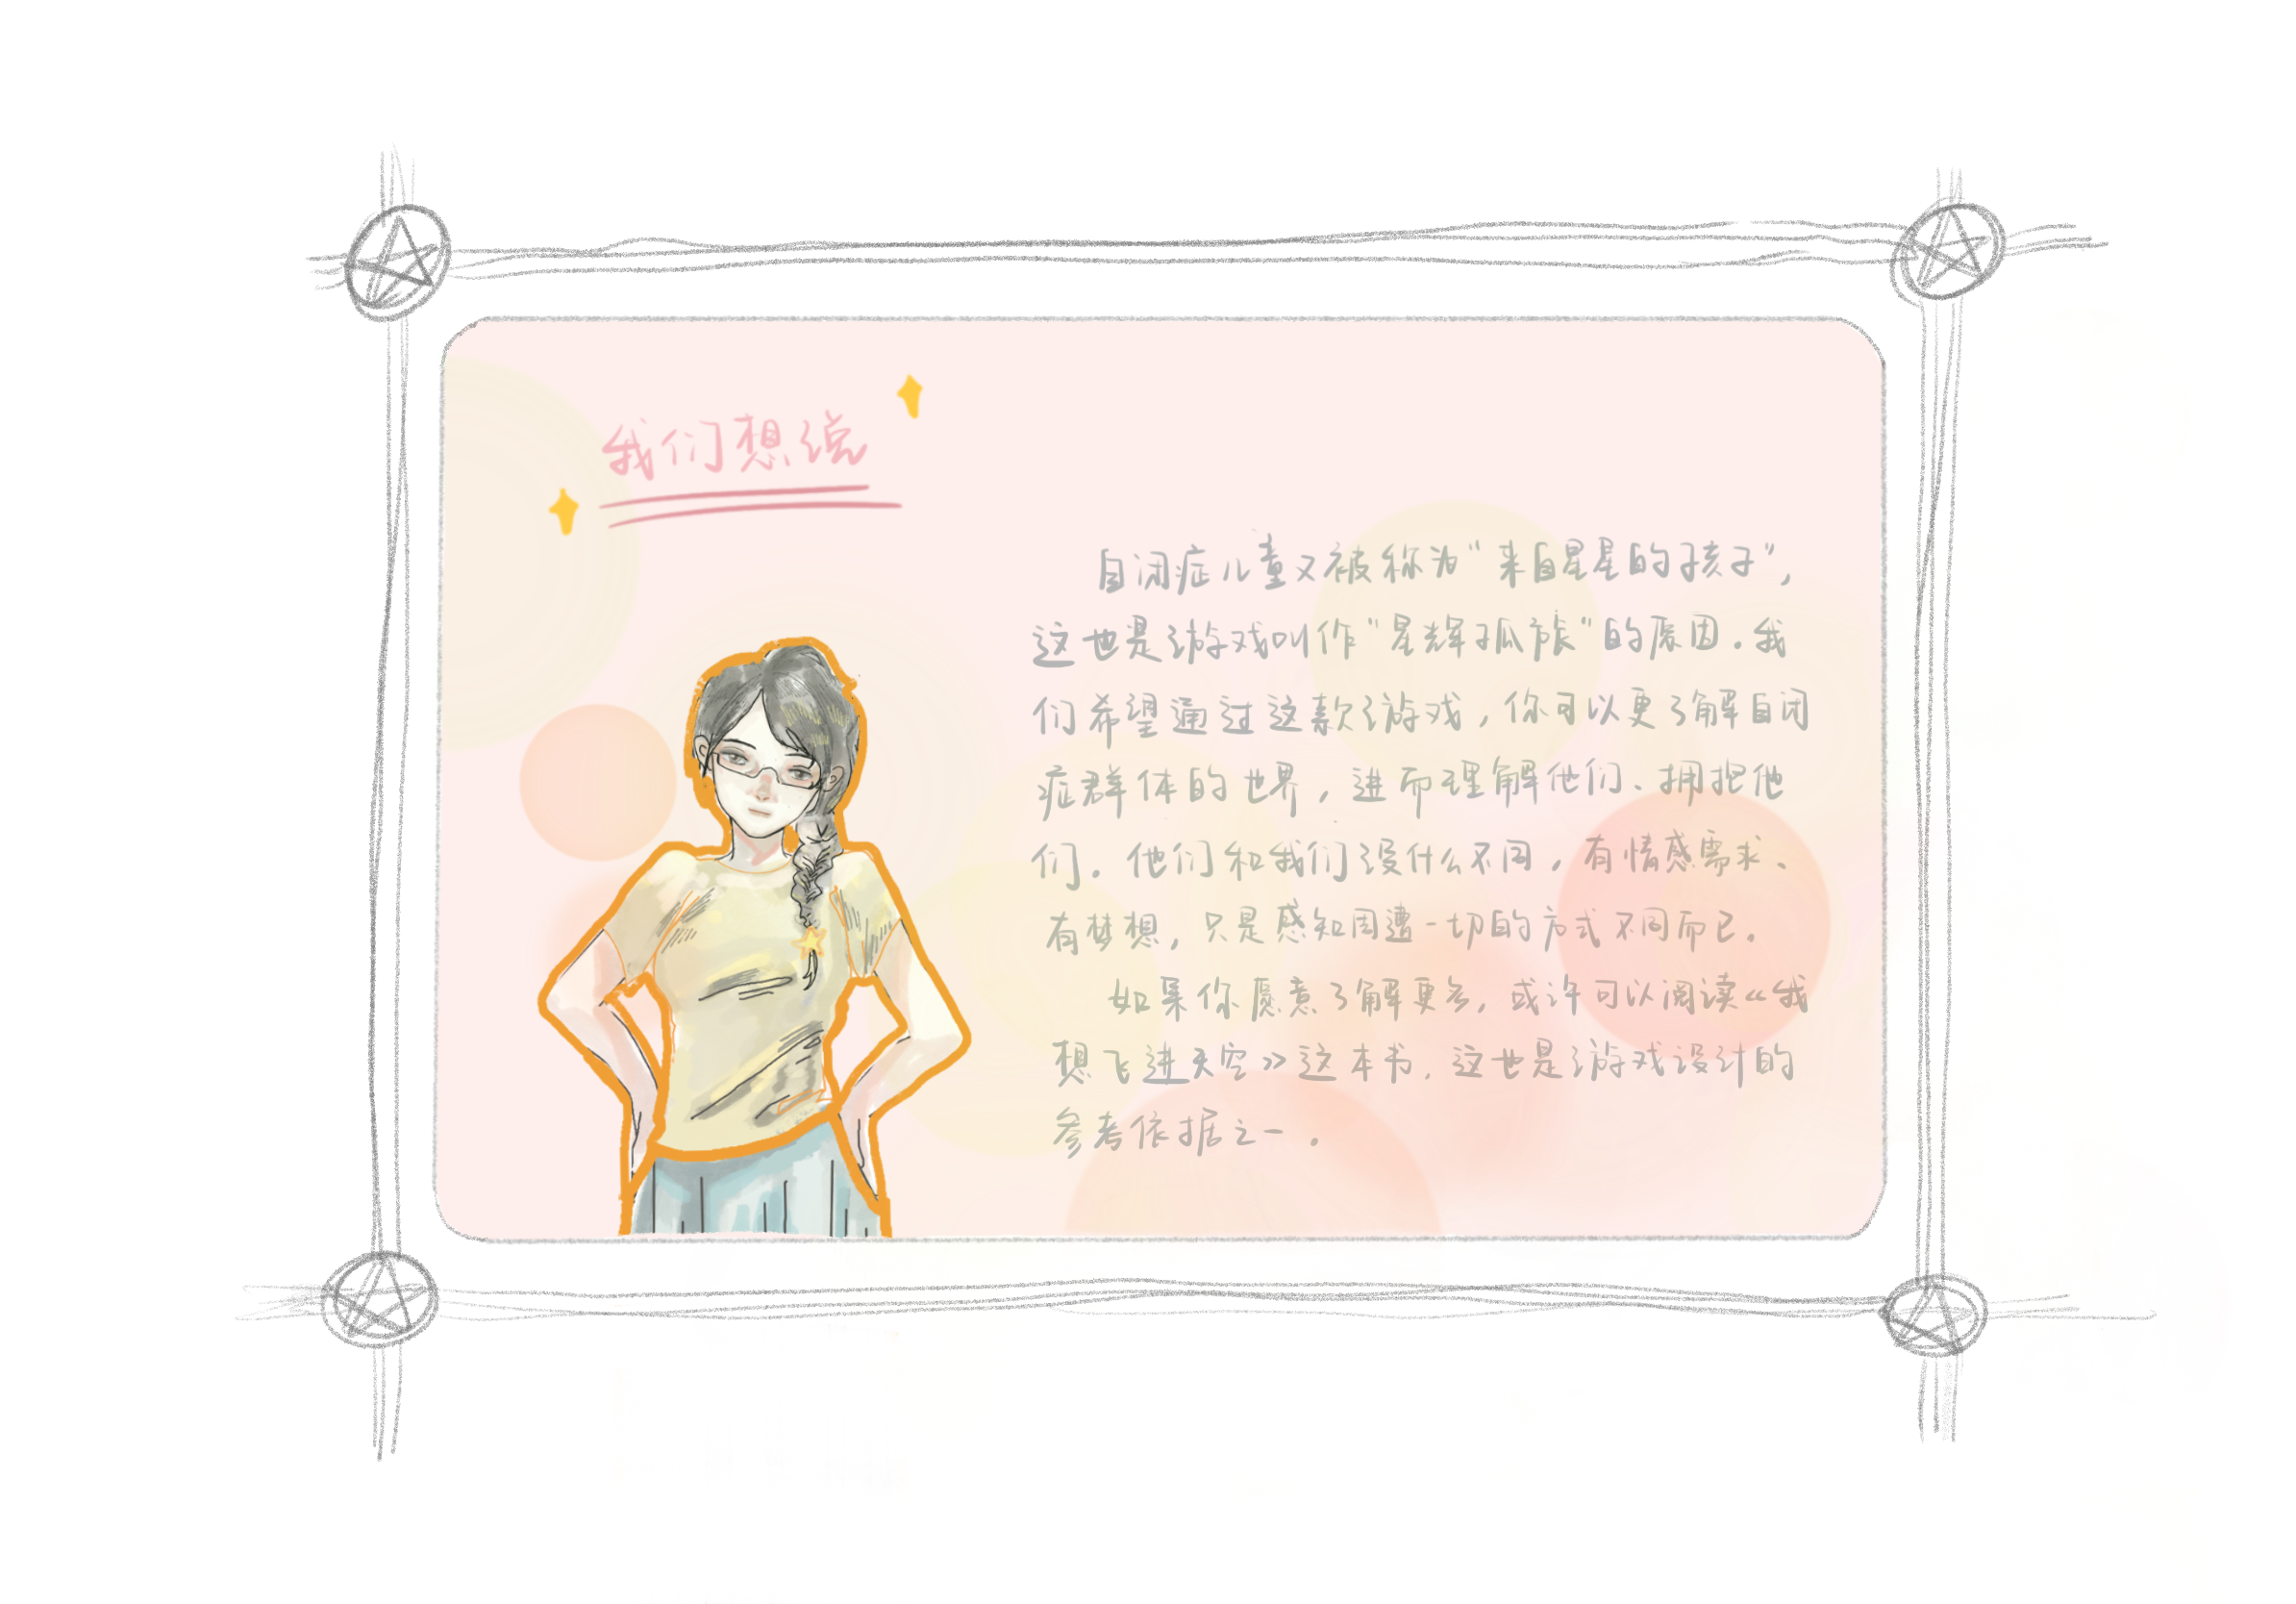 我们想说
自闭症儿童又被称为“来自星星的孩子”，
这也是游戏叫作“星辉孤旅”的原因．我
们希望通过这款游戏，你可以更了解自闭
症群体的世界，进而理解他们、拥抱他
们．他们和我们没什么不同，有情感需求、
有梦想，只是感知周遭一切的方式不同而已．
如果你愿意了解更多，或许可以阅读《我
想飞进天空》这本书，这也是游戏设计的
参考依据之一．